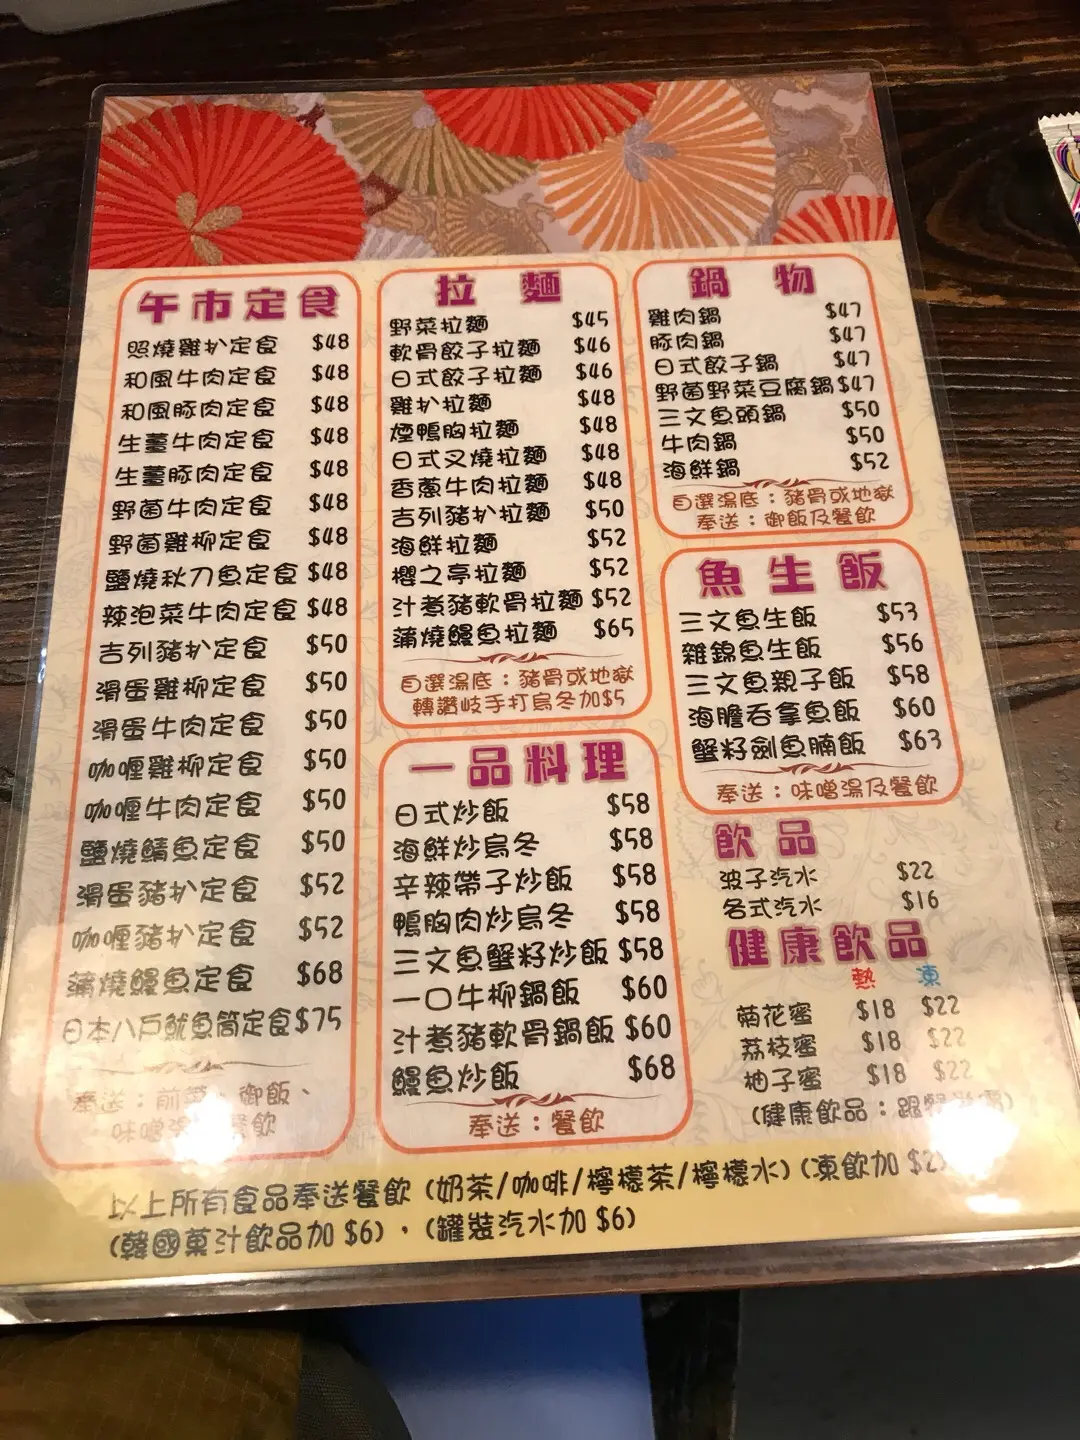 午市定食
照燒雞扒定食 $48
和風牛肉定食 $48
和風豚肉定食 $48
生薑牛肉定食 $48
生薑豚肉定食 $48
野菌牛肉定食 $48
野菌雞柳定食 $48
鹽燒秋刀魚定食 $48
辣泡菜牛肉定食 $48
吉列豬扒定食 $50
滑蛋雞柳定食 $50
滑蛋牛肉定食 $50
咖喱雞柳定食 $50
咖喱牛肉定食 $50
鹽燒鯖魚定食 $50
滑蛋豬扒定食 $52
咖喱豬扒定食 $52
蒲燒鰻魚定食 $68
日本八戶魷魚筒定食 $75
奉送：前菜、御飯、
味噌湯 餐飲
拉麵
野菜拉麵 $45
軟骨餃子拉麵 $46
日式餃子拉麵 $46
雞扒拉麵 $48
煙鴨胸拉麵 $48
日式叉燒拉麵 $48
香蔥牛肉拉麵 $48
吉列豬扒拉麵 $50
海鮮拉麵 $52
櫻之亭拉麵 $52
汁煮豬軟骨拉麵 $52
蒲燒鰻魚拉麵 $65
自選湯底：豬骨或地獄
轉讚岐手打烏冬加$5
一品料理
日式炒飯 $58
海鮮炒烏冬 $58
辛辣帶子炒飯 $58
鴨胸肉炒烏冬 $58
三文魚蟹籽炒飯 $58
一口牛柳鍋飯 $60
汁煮豬軟骨鍋飯 $60
鰻魚炒飯 $68
奉送：餐飲
鍋物
雞肉鍋 $47
豚肉鍋 $47
日式餃子鍋 $47
野菌野菜豆腐鍋 $47
三文魚頭鍋 $50
牛肉鍋 $50
海鮮鍋 $52
自選湯底：豬骨或地獄
奉送：御飯及餐飲
魚生飯
三文魚生飯 $53
雜錦魚生飯 $56
三文魚親子飯 $58
海膽吞拿魚飯 $60
蟹籽劍魚腩飯 $63
奉送：味噌湯及餐飲
飲品
波子汽水 $22
各式汽水 $16
健康飲品
熱 凍
菊花蜜 $18 $22
荔枝蜜 $18 $22
柚子蜜 $18 $22
(健康飲品：跟餐
以上所有食品奉送餐飲 (奶茶/咖啡/檸檬茶/檸檬水) (凍飲加 $2)
(韓國菓汁飲品加 $6)，(罐裝汽水加 $6)